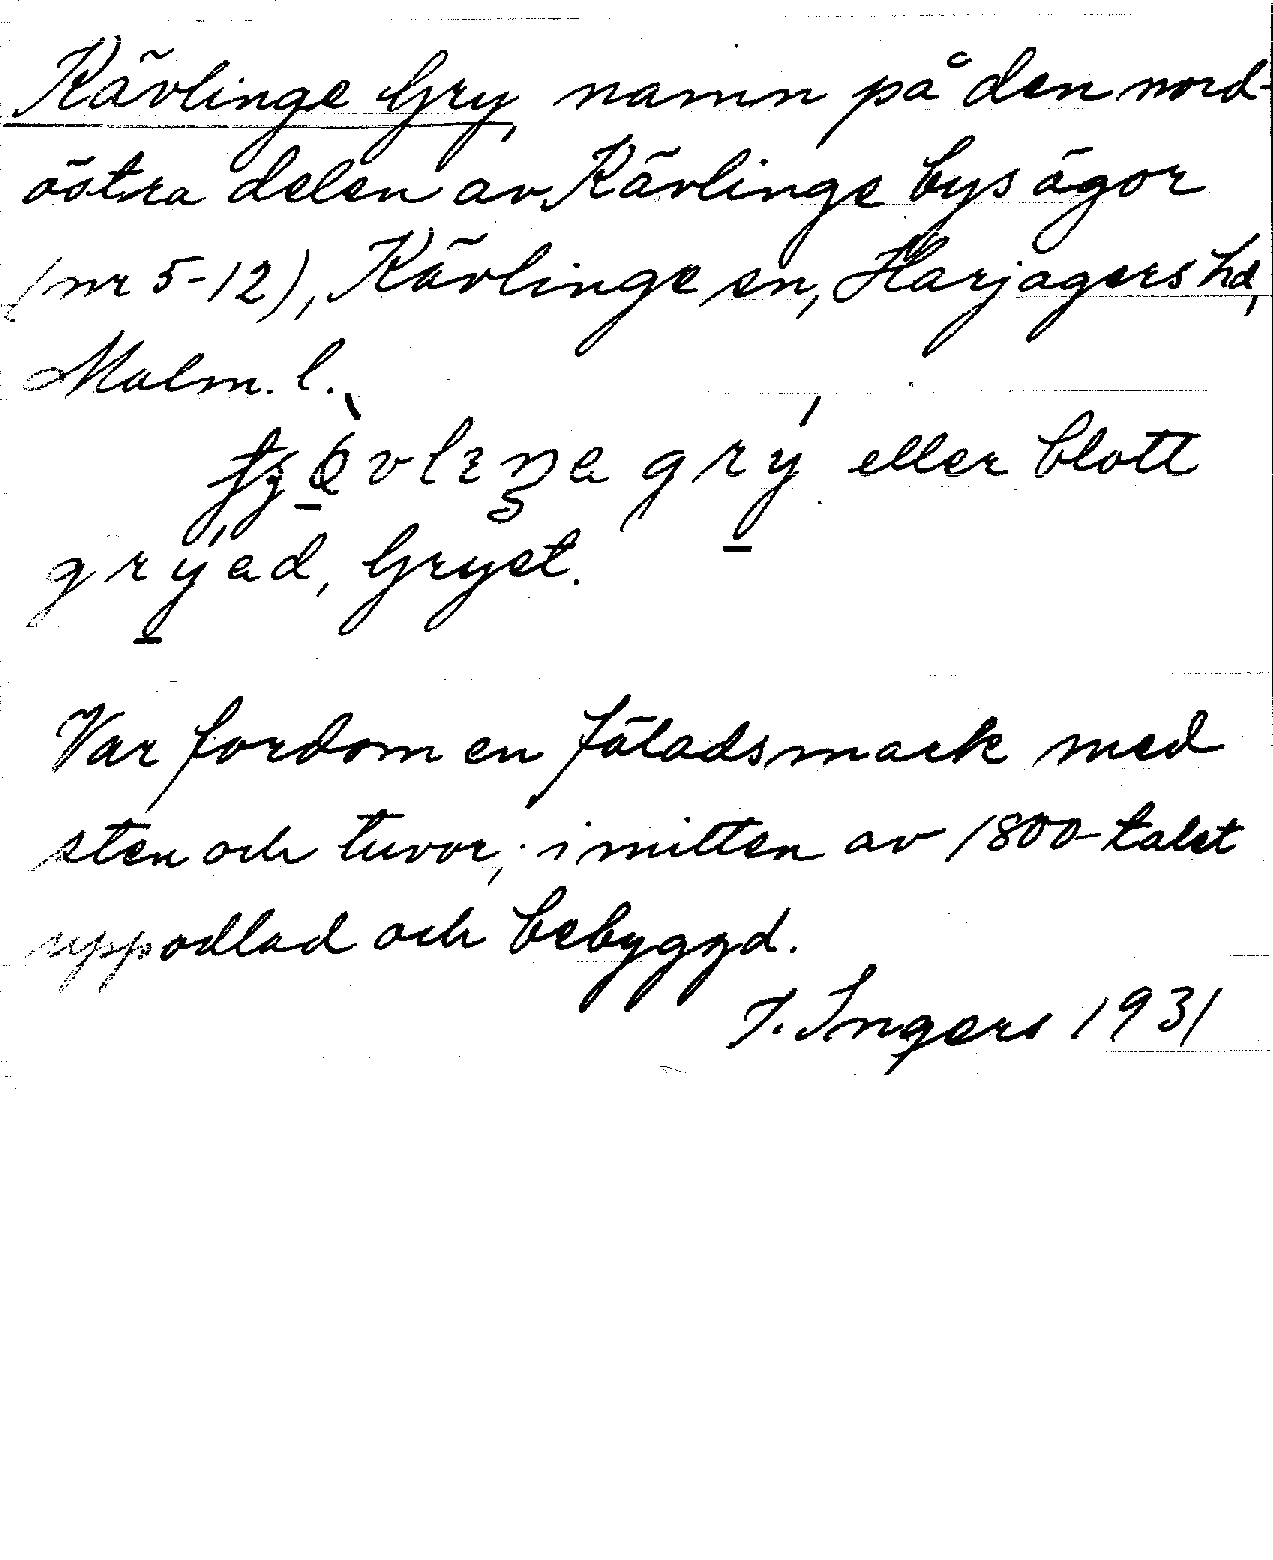 Kävlinge Gry, namn på den nord-
östra delen av Kävlinge bys ägor
(nr 5-12), Kävlinge sn, Harjagers hd,
Malm. l.
gry eller blott
grýad, Gryet.
Var fordom en fäladsmark med
sten och tuvor; i mitten av 1800-talet
uppodlad och bebyggd.
I. Ingers 1931